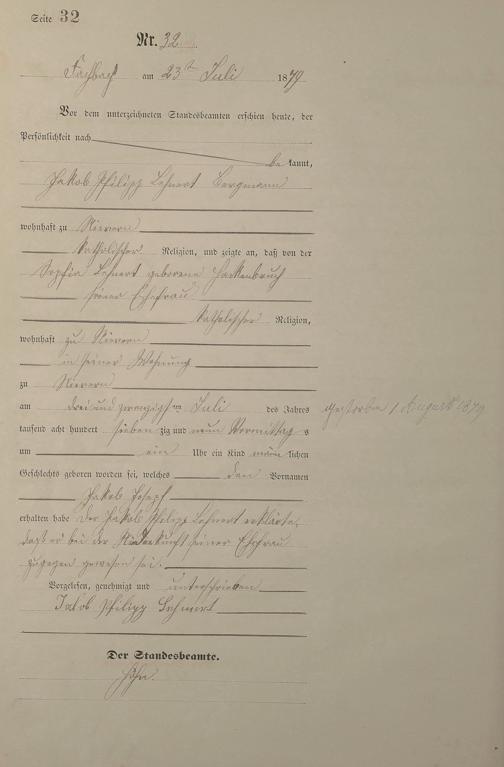 Seite 32
Nr. 32
Fachbach am 23ten Juli 1879
Vor dem unterzeichneten Standesbeamten erschien heute, der
Persönlichkeit nach
be kannt,
Jakob Philipp Lehnert Bergmann
wohnhaft zu Nievern
katholischer Religion, und zeigte an, daß von der
Sophia Lehnert geborene Hackenbruch
seiner Ehefrau
katholischer Religion,
wohnhaft zu Nievern
in seiner Wohnung
zu Nievern
am drei und zwanzigsten Juli des Jahres
tausend acht hundert sieben zig und neun Vormittag s
um ein Uhr ein Kind männ lichen
Geschlechts geboren worden sei, welches den Vornamen
Jakob Joseph
erhalten habe Der Jakob Philipp Lehnert erklärte,
daß er bei der Niederkunft seiner Ehefrau
zugegen gewesen sei.
Vorgelesen, genehmigt und unterschrieben
Jakob Philipp Lehnert
Der Standesbeamte.
Höhn.
gestorben 1 August 1879